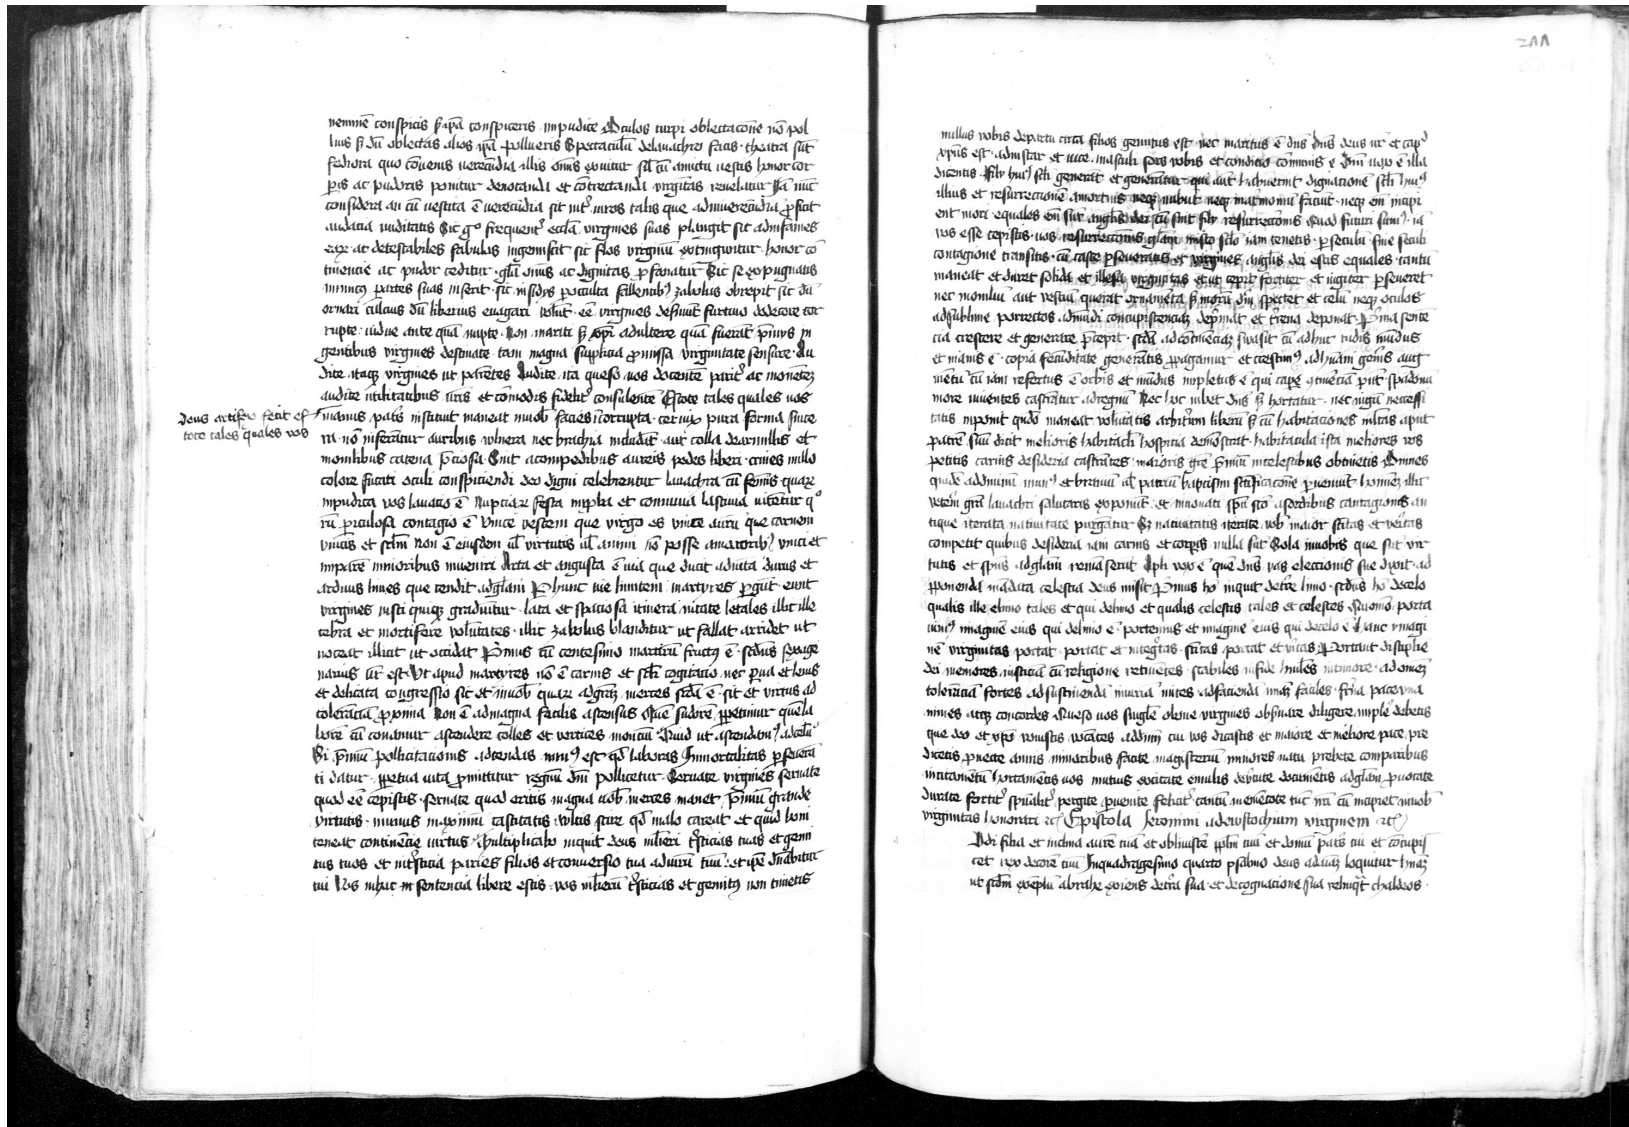 neminē conspicis sꝫ ip̄a conspiceris impudice Oculos turpi oblectacōne nō pol
luis sꝫ dū oblectas alios ip̄a pollueris Spectaculū delauachro facis theatra sūt
fediora quo cōuenis uerecūdia illic omīs exuitur sil̄ cū amictu uestis honor cor
ꝑis ac pudoras ponitur denotanda et cōtrectanda virgītas reuelatur Iā nūc
considera an cū uestita ē uerecūdia sit int̄ uiros talis que adinuerecūdiā ꝓficit
audacia nuditatis Sic gº frequent̄ eccl̄ia virgines suas plangit sic adinfames
eaꝝ ac detestabiles fabulas ingemiscit sic flos virginū extinguitur honor cō
tinencie ac pudor ceditur gl̄ia om̄is ac dignitas ꝓfanatur Sic se expugnans
inimicꝰ ꝑ artes suas inserit sic insidijs ꝑ occulta fallentibꝰ zabolus obrepit sic dū
ornari cultius dū liberius euagari uolūt eē virgines desinūt furtiuo dedecore cor
rupte uidue ante quā nupte Non mariti sꝫ xp̄i adultere quā fuerāt p̄mijs in
gentibus virgines destinate tam magna supplicia ꝓ amissa virginitate sensure Au
dite itaqꝫ virgines ut parētes Audite ita queso uos docentē parit̄ ac monētē
audite utilitatibus ūris et cōmodis fidelit̄ consulente Estote tales quales uos
deus artifex fecit es
tote tales quales uos
manus patris instituit maneat inuob̄ facies īcorrupta ceruix pura forma since
ra nō inferātur auribus uolnera nec brachia includat aut colla dearmillis et
monilibus catena p̄ciosa Sint acompedibus aureis pedes liberi crines nullo
colore fucati oculi conspiciendi deo digni celebrentur lauachra cū femīs quaꝝ
impudica vos lauatio ē Nupciaꝝ festa improba et conuiuia lasciuia uitētur qº
rū ꝑiculosa contagio ē Vince uestem que virgo es vince aurū que carnem
vincis et scl̄m Non ē eiusdem ul̄ virtutis ul̄ animi nō posse amaioribꝰ vinci et
imparē minoribus inueniri Arta et angusta ē uia que ducit aduitā durus et
arduus limes que tendit adgl̄iam P hunc uie limitem martyres ꝑgūt eunt
virgines iusti quiqꝫ gradiūtur lata et spaciosa itinera uitate letales illic ille
cebra et mortifere volūtates illic zabolus blanditur ut fallat arridet ut
noceat illicit ut occidat Primus cū centesimo martirū fructꝰ ē scd̄us sexage
narius ūr est Vt apud martyres nō ē carnis et scl̄i cogitacio nec ꝑua et leuis
et delicata congressio sic et inuob̄ quaꝝ adgrāꝫ merces scd̄a ē sit et virtus ad
tolerāciā ꝓxima Non ē admagna facilis ascensus Quē sudorē ꝑpetimur quē la
borē cū conamur ascendere colles et vertices montiū Quid ut ascendamꝰ adcelū
Si p̄miū pollicitacionis adtendas minꝰ est qd̄ laboras Inmortalitas ꝑseuerā
ti datur ꝑpetua uita ꝓmittitur regnū dn̄i pollicetur Seruate virgines seruate
quod eē cepistis seruate quod eritis magna uob̄ merces manet p̄miū grande
virtutis munus maximū castitatis vultis scire qd̄ malo careat et quid boni
teneat continēcie virtus Multiplicabo inquit deus mulieri tristicias tuas et gemi
tus tuos et int̄sticia paries filios et conuersio tua aduirū tuū et ip̄e dn̄abitur
tui Vos abhac sentencia libere estis vos mulierū tristicias et gemitꝰ non timetis
nullus vobis departu circa filios gemitus est nec maritus ē dn̄s dn̄s deus ūr et cap̄
xp̄us est adinstar et uice masculi sors vobis et condicio cōmunis ē Dn̄i uox ē illa
dicentis Filij huiꝰ scl̄i generāt et generātur qui aūt habuerint dignacionē scl̄i huiꝰ
illius et resurrectionē amortuis neqꝫ nubūt neqꝫ matrimoniū faciūt neqꝫ em̄ incipi
ent mori equales em̄ sūt angl̄is dei cū sint filij resurrectōnis Quod futuri sumꝰ iā
vos esse cepistis uos resurrectōnis gl̄iam inisto scl̄o iam tenetis ꝑ seculū sine seculi
contagione transitis cū caste ꝑseueratis et virgines angl̄is dei estis equales tantū
maneat et duret solida et illesa virginitas et ut cepit fortiter et iugiter ꝑseueret
nec moniliū aut vestiū querat ornamēta sꝫ morū dn̄m spectet et celū neqꝫ oculos
adsublime porrectos admūdi concupiscenciā dep̄mat et t̄rena deponat Prima sentē
cia crescere et generare p̄cepit scd̄a adcōtinēciā suasit cū adhuc rudis mūdus
et inanis ē copia fecūditate generātis ꝓpagamur et crescimꝰ adhūani genīs aug
mētū cū iam refertus ē orbis et mūdus impletus ē qui caꝑe 9tinēciam pn̄t spadonū
more uiuentes castrātur adregnū Nec hoc iubet dn̄s sꝫ hortatur nec iugū necessi
tatis inponit qn̄do maneat volūtatis arbitriū liberū sꝫ cū habitaciones multas aput
patrē suū dicit melioris habitacli hospitia demōstrat habitacula ista meliores vos
petitis carnis desideria castrātes maioris grē p̄miū incelestibus obtinetis Omnes
quidē addiuinū munꝰ et bratriū patriū baptismi sc̄tificacōne ꝑueniūt homīeꝫ illic
veterē grā lauachri salutaris exponūt et innouati spū sc̄o asordibus contagionis an
tique iterata natiuitate purgātur Sꝫ natiuitatis iterate vob̄ maior sc̄itas et veritas
competit quibus desideria iam carnis et corꝑis nulla sūt Sola inuobis que sūt vir
tutis et spūs adgl̄iam remāserūt Apl̄i uox ē quē dn̄s vas eleccionis sue dixit ad
ꝓponenda mādata celestia deus misit Primus hō inquit det̄re limo scd̄us hō decelo
qualis ille elimo tales et qui delimo et qualis celestis tales et celestes Quomō porta
uimꝰ imaginē eius qui delimo ē portemus et imaginē eius qui decelo ē Hanc ymagi
nē virginitas portat portat et inteḡtas sc̄itas portat et v̄itas Portant discipline
dei memores iusticiā cū religione retinētes stabiles infide hūiles intimore ad omneꝫ
tolerāciā fortes adsustinendā iniuriā mites adfaciendā miāꝫ faciles frn̄a pace vna
nimes atqꝫ concordes Queso uos singl̄e o bone virgines obseruare diligere implē debetis
que deo et xp̄o uouistis vocātes addn̄m cui vos dicastis et maiore et meliore pace pre
dicetis ꝓuecte annis minoribus facite magisteriū minores natu prebete comparibus
incitamētū hortamētis uos mutuis excitate emulis debitute documētis adglam ꝓuocate
Durate fortit̄ spūalit̄ pergite ꝑuenite felicit̄ tantū memētote tūc nr̄i cū incipiet inuob̄
virginitas honorari ꝛc̄ Epistola Jeronimi adewstochium virginem ꝛc̄
Audi filia et inclina aurē tuā et obliuiscē ppl̄m tuū et domū patris tui et concupis
cet rex decorē tuū Inquadragesimo quarto psalmo deus adaiaꝫ loquitur hūanaꝫ
ut scd̄m exēplū abrahe exiens det̄ra sua et decognacione sua relinq̄t chaldeos